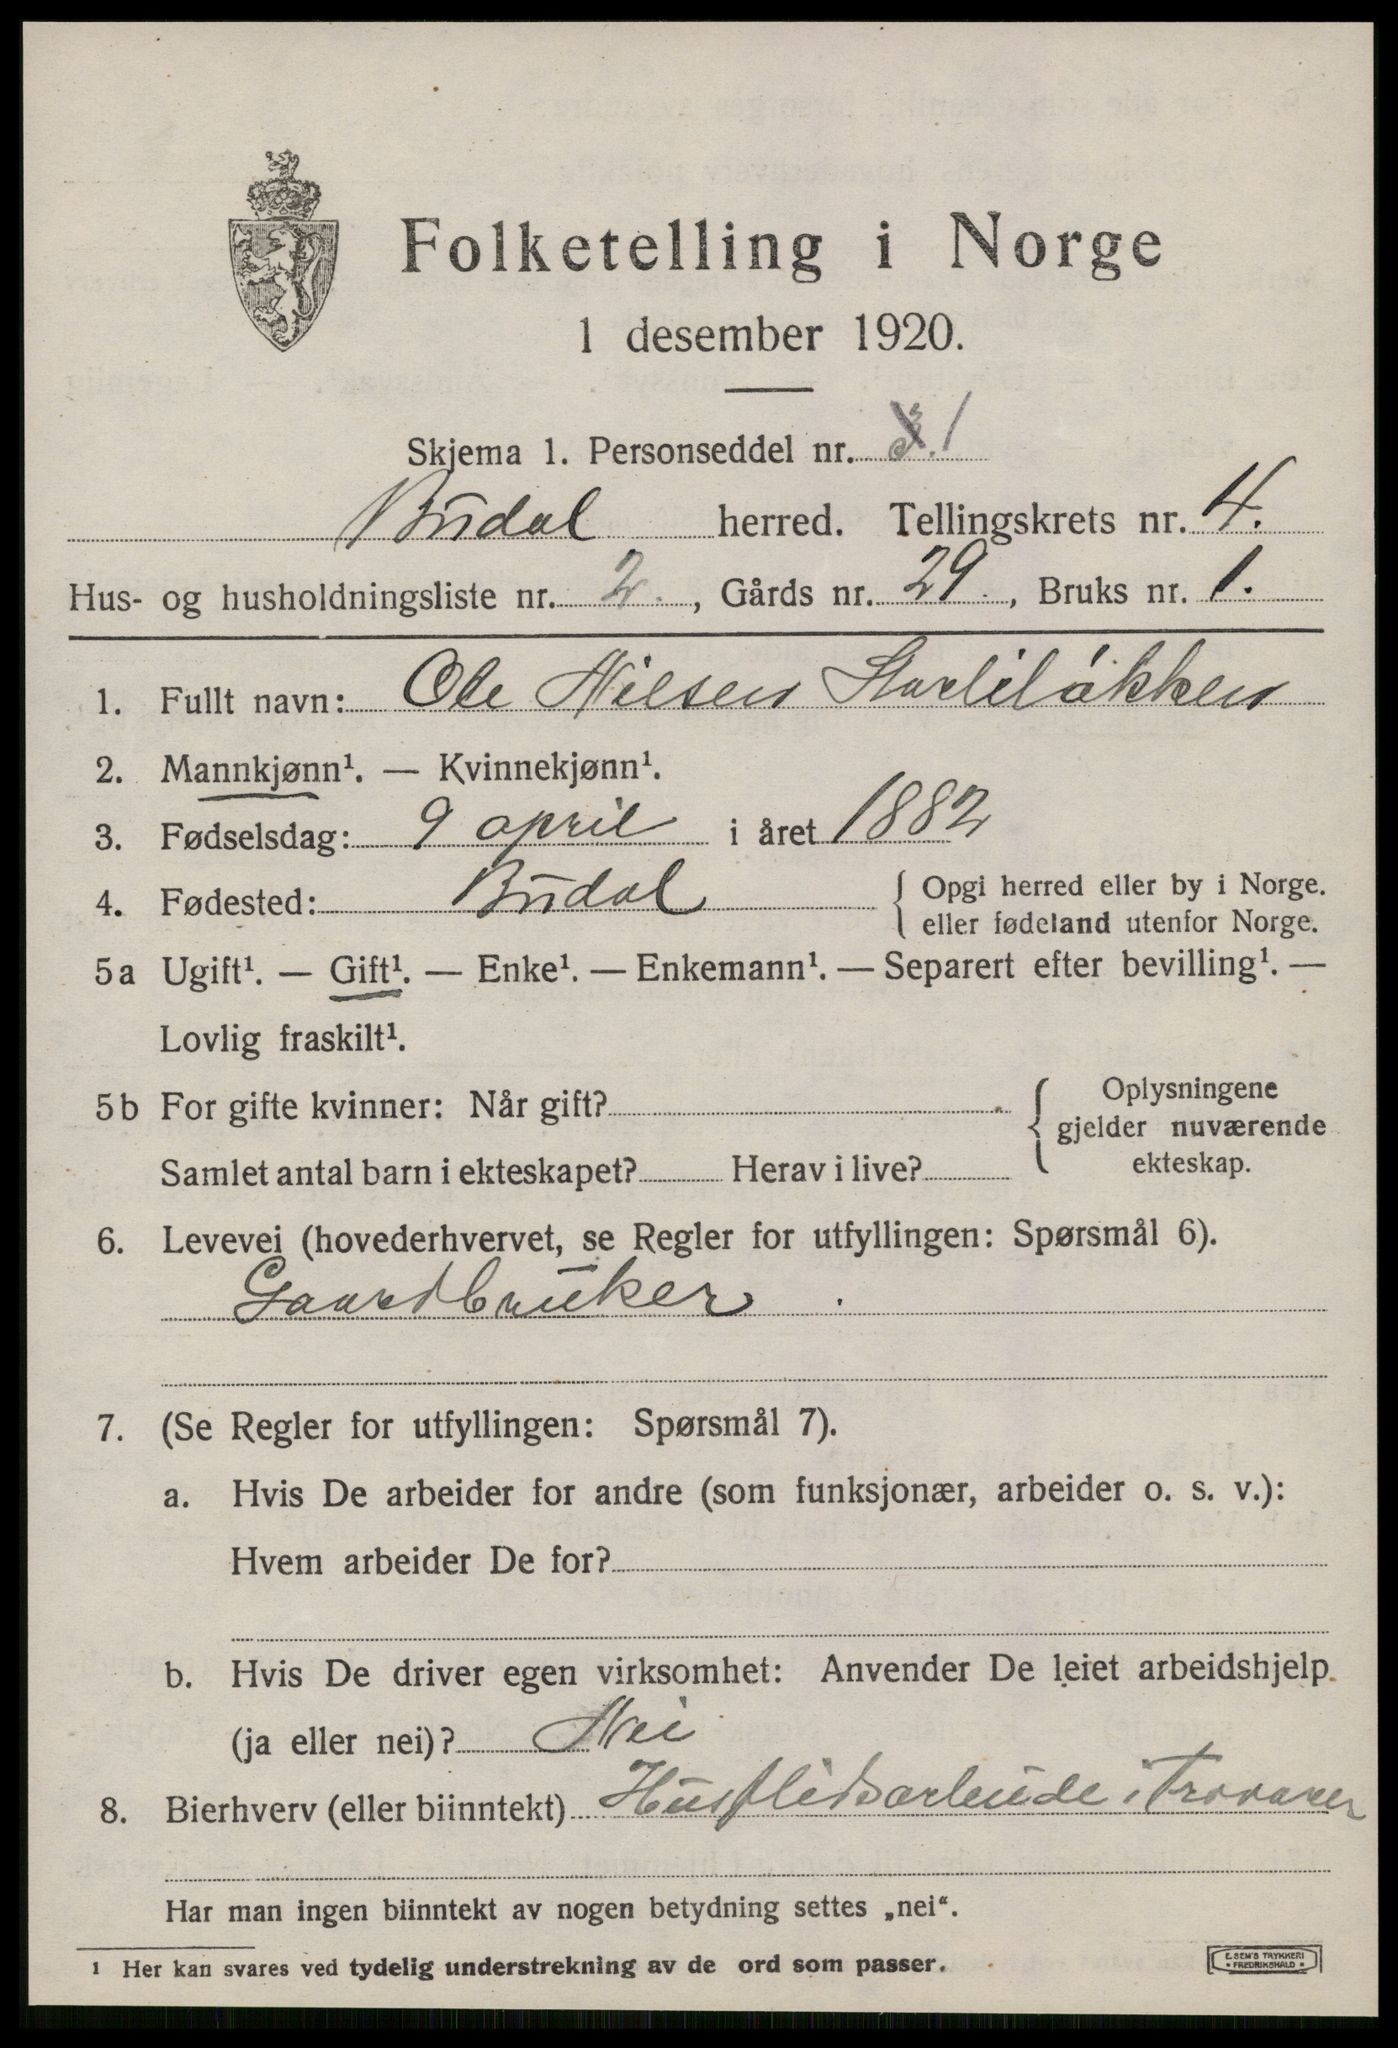 Folketelling i Norge
1 desember 1920.
Skjema 1. Personseddel nr. 1
Budal herred. Tellingskrets nr. 4.
Hus- og husholdningsliste nr. 2. , Gårds nr. 29. , Bruks nr. 1.
1. Fullt navn: Ole Nilsen Storliløkken
2. Mannkjønn¹. — Kvinnekjønn¹.
3. Fødselsdag: 9 april i året 1882
4. Fødested: Budal { Opgi herred eller by i Norge.
eller fødeland utenfor Norge.
5a Ugift¹. — Gift¹. — Enke¹. — Enkemann¹. — Separert efter bevilling¹. —
Lovlig fraskilt¹.
5b For gifte kvinner: Når gift? { Oplysningene
gjelder nuværende
Samlet antal barn i ekteskapet? Herav i live? ekteskap.
6. Levevei (hovederhvervet, se Regler for utfyllingen: Spørsmål 6).
Gaardbruker .
7. (Se Regler for utfyllingen: Spørsmål 7).
a. Hvis De arbeider for andre (som funksjonær, arbeider o. s. v.):
Hvem arbeider De for?
b. Hvis De driver egen virksomhet: Anvender De leiet arbeidshjelp
(ja eller nei)? Nei
8. Bierhverv (eller biinntekt) Husflidsarbeide i Trovarer
Har man ingen biinntekt av nogen betydning settes „nei“.
1 Her kan svares ved tydelig understrekning av de ord som passer.
E. SEM'S TRYKKERI
• FREDRIKSHALD •